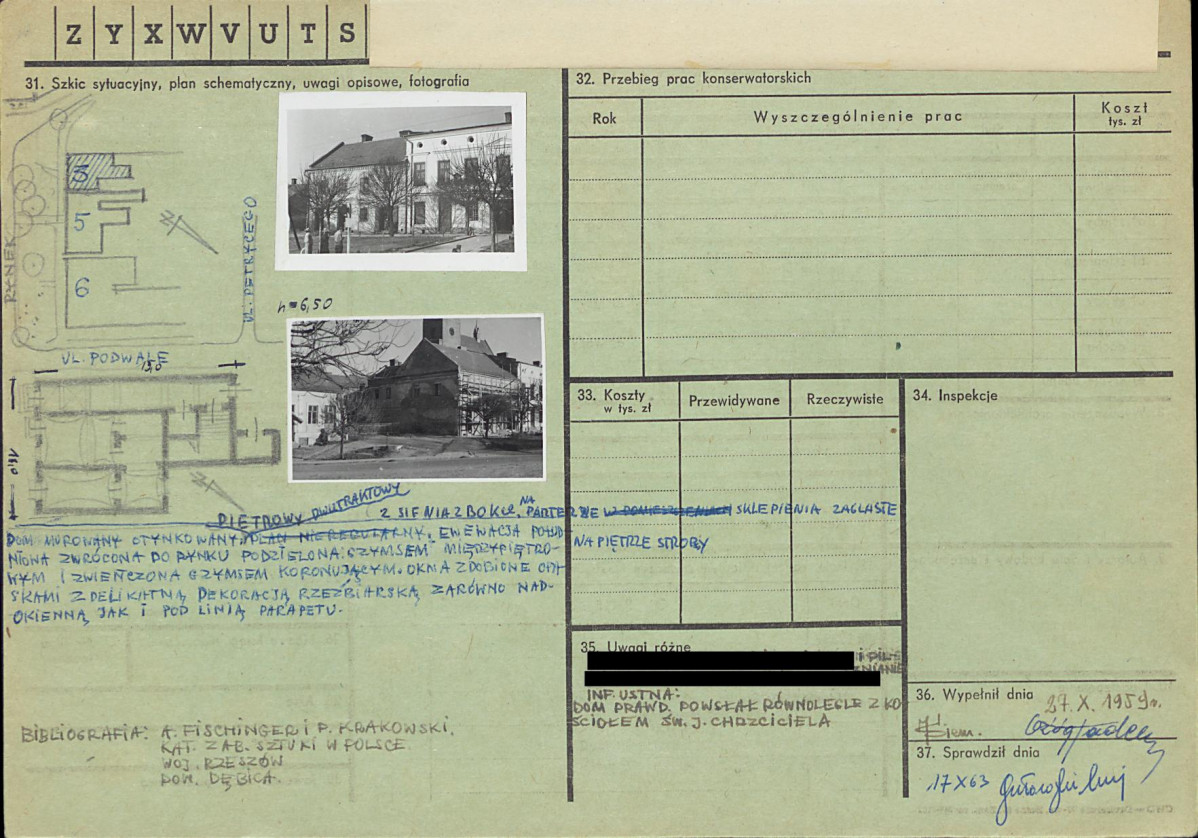 Z Y X W V U T S
31. Szkic sytuacyjny, plan schematyczny, uwagi opisowe, fotografia
3
5
6
N
RYNEK
UL. PETRYCEGO
UL. PODWALE
h = 6,50
13,0
15,0
N
PIĘTROWY DWUTRAKTOWY
Z SIENIĄ Z BOKU. NA PARTERZE W POMIESZCZENIACH SKLEPIENIA ZAGLASTE
NA PIĘTRZE STROPY
DOM MUROWANY OTYNKOWANY, PLAN NIEREGULARNY. EWEWACJA POŁUD
NIOWA ZWRÓCONA DO RYNKU PODZIELONA GZYMSEM MIĘDZYPIĘTRO-
WYM I ZWIEŃCZONA GZYMSEM KORONUJĄCYM. OKNA ZDOBIONE OPA
SKAMI Z DELIKATNĄ DEKORACJĄ RZEŹBIARSKĄ ZARÓWNO NAD-
OKIENNĄ JAK I POD LINIĄ PARAPETU.
BIBLIOGRAFIA: A. FISCHINGER I P. KRAKOWSKI.
KAT. ZAB. SZTUKI W POLSCE
WOJ. RZESZÓW
POW. DĘBICA.
32. Przebieg prac konserwatorskich
Rok
Wyszczególnienie prac
Koszt
tys. zł
33. Koszty
w tys. zł
Przewidywane
Rzeczywiste
34. Inspekcje
35. Uwagi różne
I PIL
INF. USTNA:
DOM PRAWD. POWSTAŁ RÓWNOLEGLE Z KO
ŚCIOŁEM ŚW. J. CHRZCICIELA
36. Wypełnił dnia
27. X. 1959 r.
37. Sprawdził dnia
17 X 63